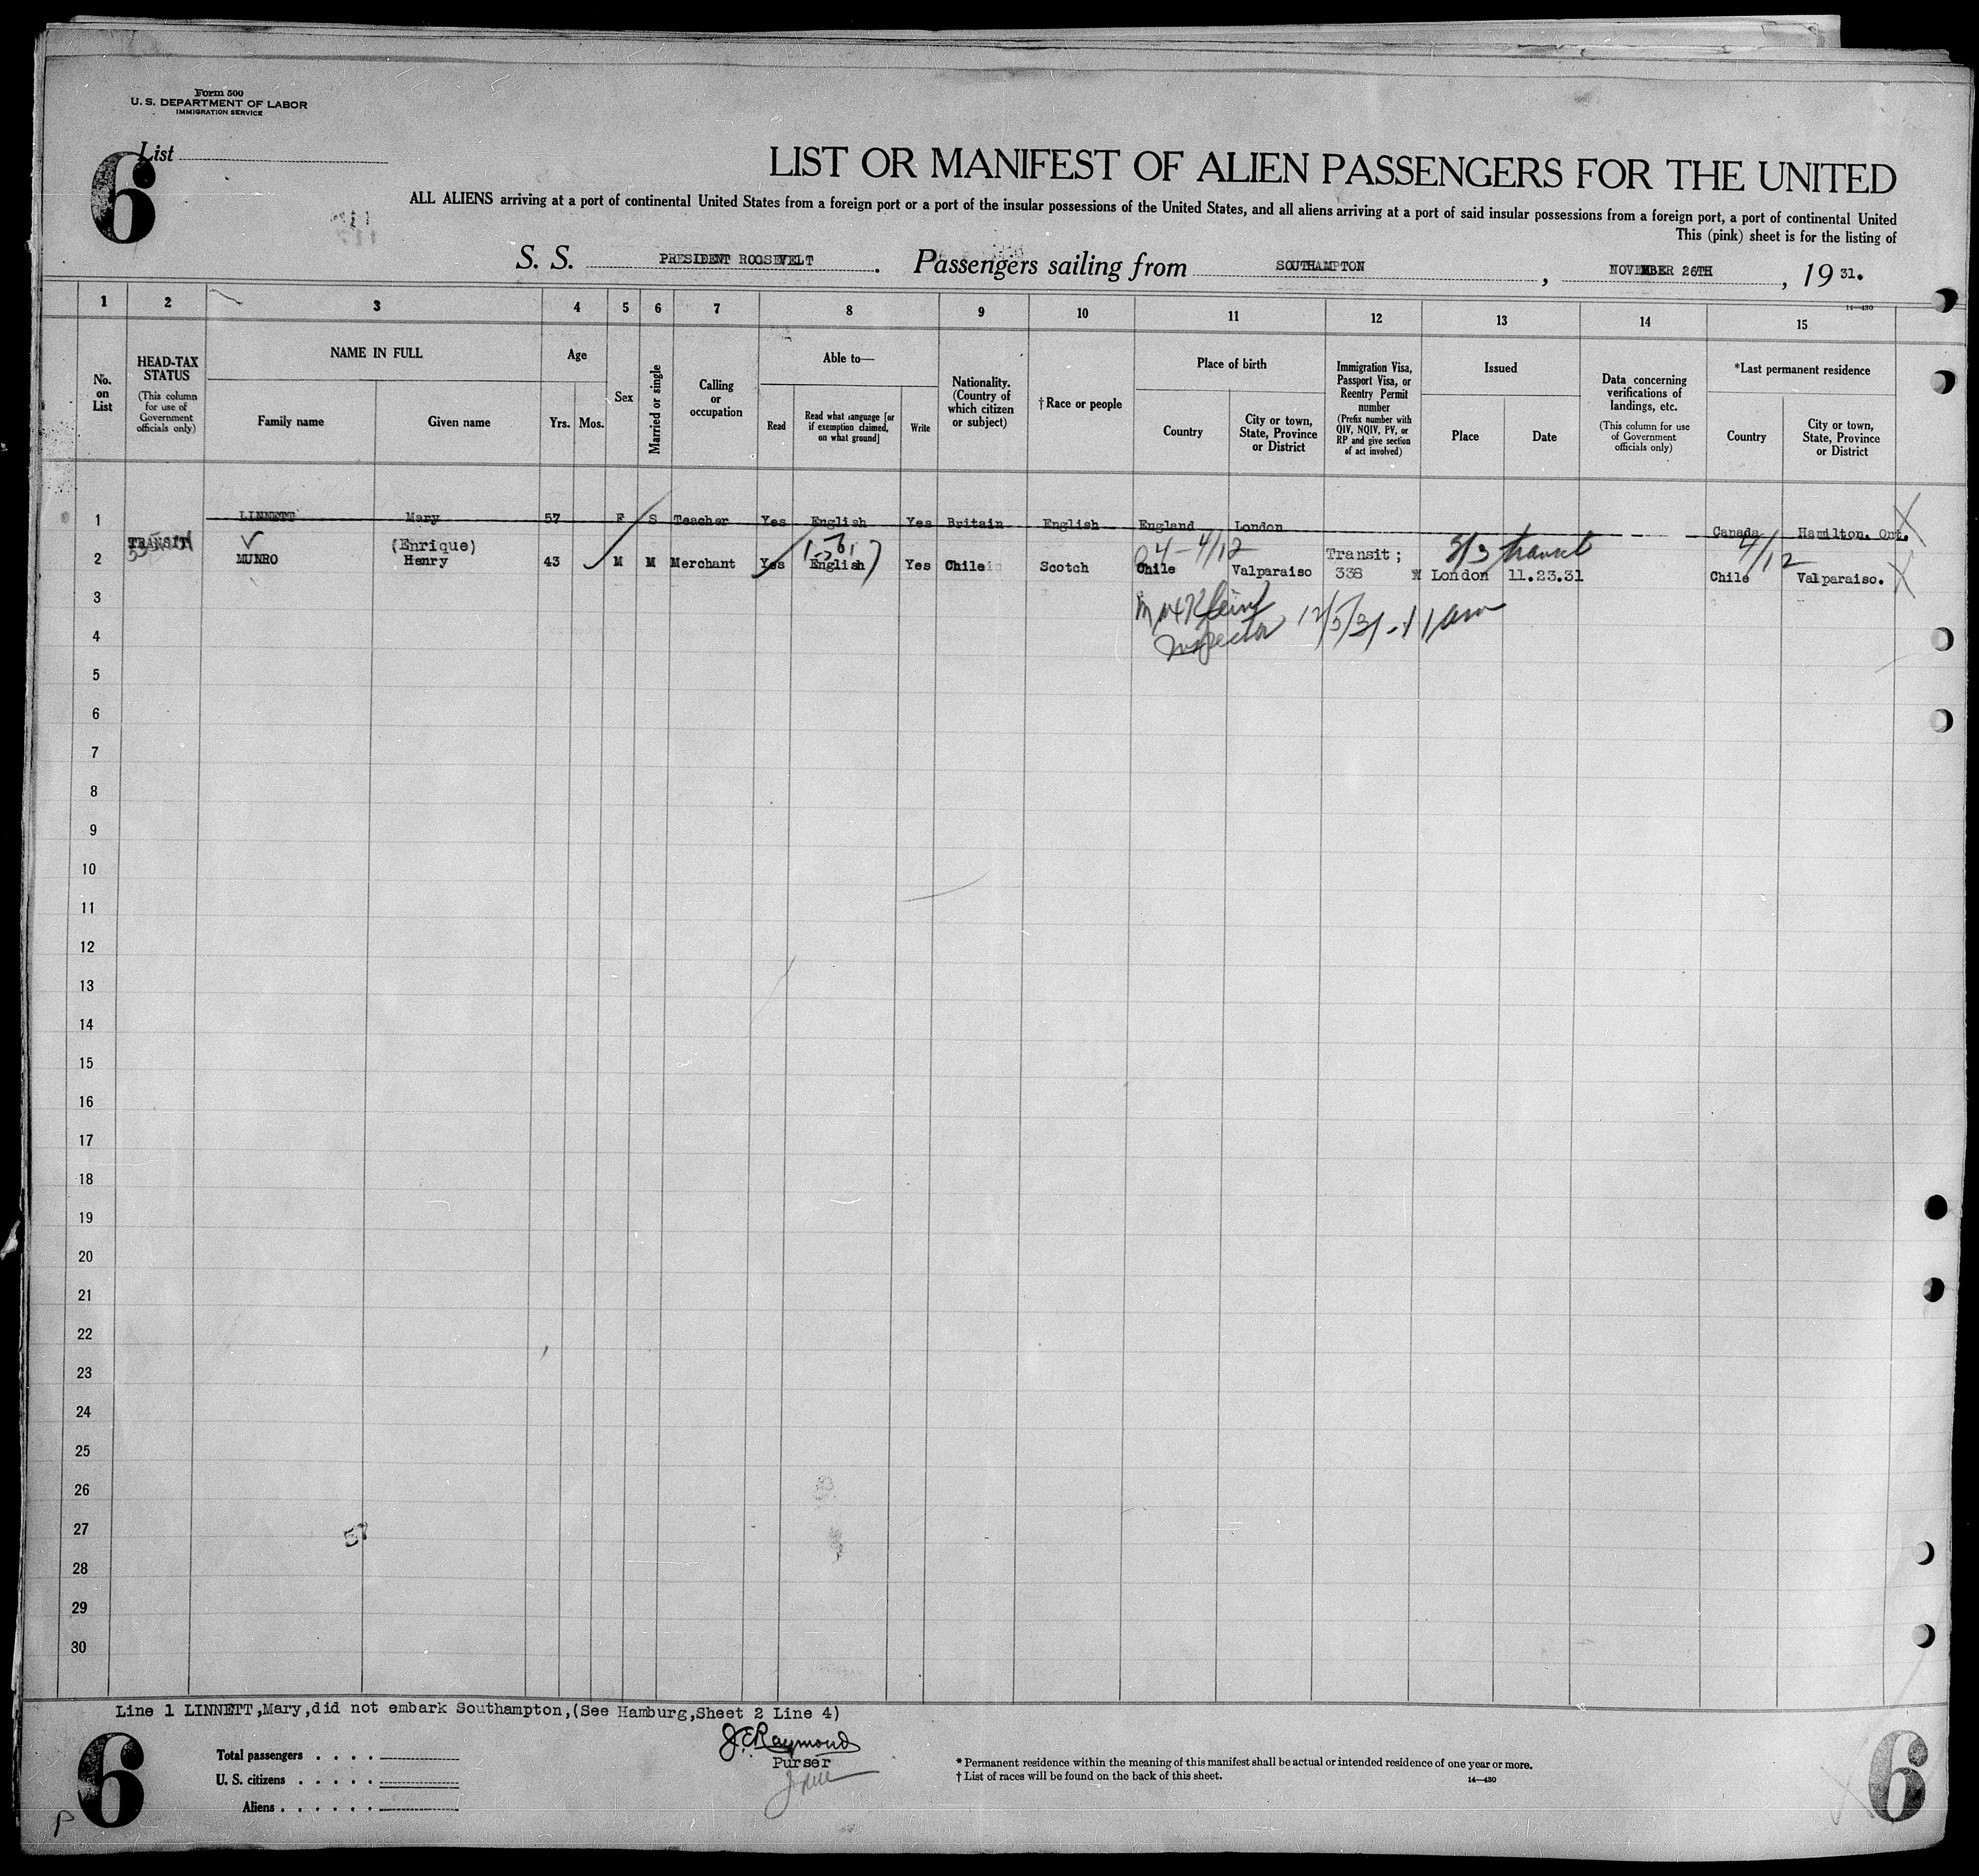 Form 500
U. S. DEPARTMENT OF LABOR
IMMIGRATION SERVICE
List
6
LIST OR MANIFEST OF ALIEN PASSENGERS FOR THE UNITED
ALL ALIENS arriving at a port of continental United States from a foreign port or a port of the insular possessions of the United States, and all aliens arriving at a port of said insular possessions from a foreign port, a port of continental United
This (pink) sheet is for the listing of
S. S. PRESIDENT ROOSEVELT. Passengers sailing from SOUTHAMPTON, NOVEMBER 26TH, 19 31.
14—430
1 2 3 4 5 6 7 8 9 10 11 12 13 14 15
No. on List
HEAD-TAX STATUS
(This column for use of Government officials only)
NAME IN FULL
Family name
Given name
Age
Yrs.
Mos.
Sex
Married or single
Calling or occupation
Able to—
Read
Read what language [or if exemption claimed, on what ground]
Write
Nationality. (Country of which citizen or subject)
†Race or people
Place of birth
Country
City or town, State, Province or District
Immigration Visa, Passport Visa, or Reentry Permit number
(Prefix number with QIV, NQIV, PV, or RP and give section of act involved)
Issued
Place
Date
Data concerning verifications of landings, etc.
(This column for use of Government officials only)
*Last permanent residence
Country
City or town, State, Province or District
1 LINNETT Mary 57 F S Teacher Yes English Yes Britain English England London Canada Hamilton. Ont.
TRANSIT (Enrique) 4-4/12 Transit; 3/3 transit 4/12
2 MUNRO Henry 43 M M Merchant Yes English Yes Chile Scotch Chile Valparaiso 338 London 11.23.31 Chile Valparaiso.
3
Inspector 12/5/31 - 11 am
4
5
6
7
8
9
10
11
12
13
14
15
16
17
18
19
20
21
22
23
24
25
26
27
28
29
30
Line 1 LINNETT,Mary,did not embark Southampton,(See Hamburg,Sheet 2 Line 4)
J.C.Raymond
Purser
6
Total passengers
U. S. citizens
Aliens
P
* Permanent residence within the meaning of this manifest shall be actual or intended residence of one year or more.
† List of races will be found on the back of this sheet.
14—430
6